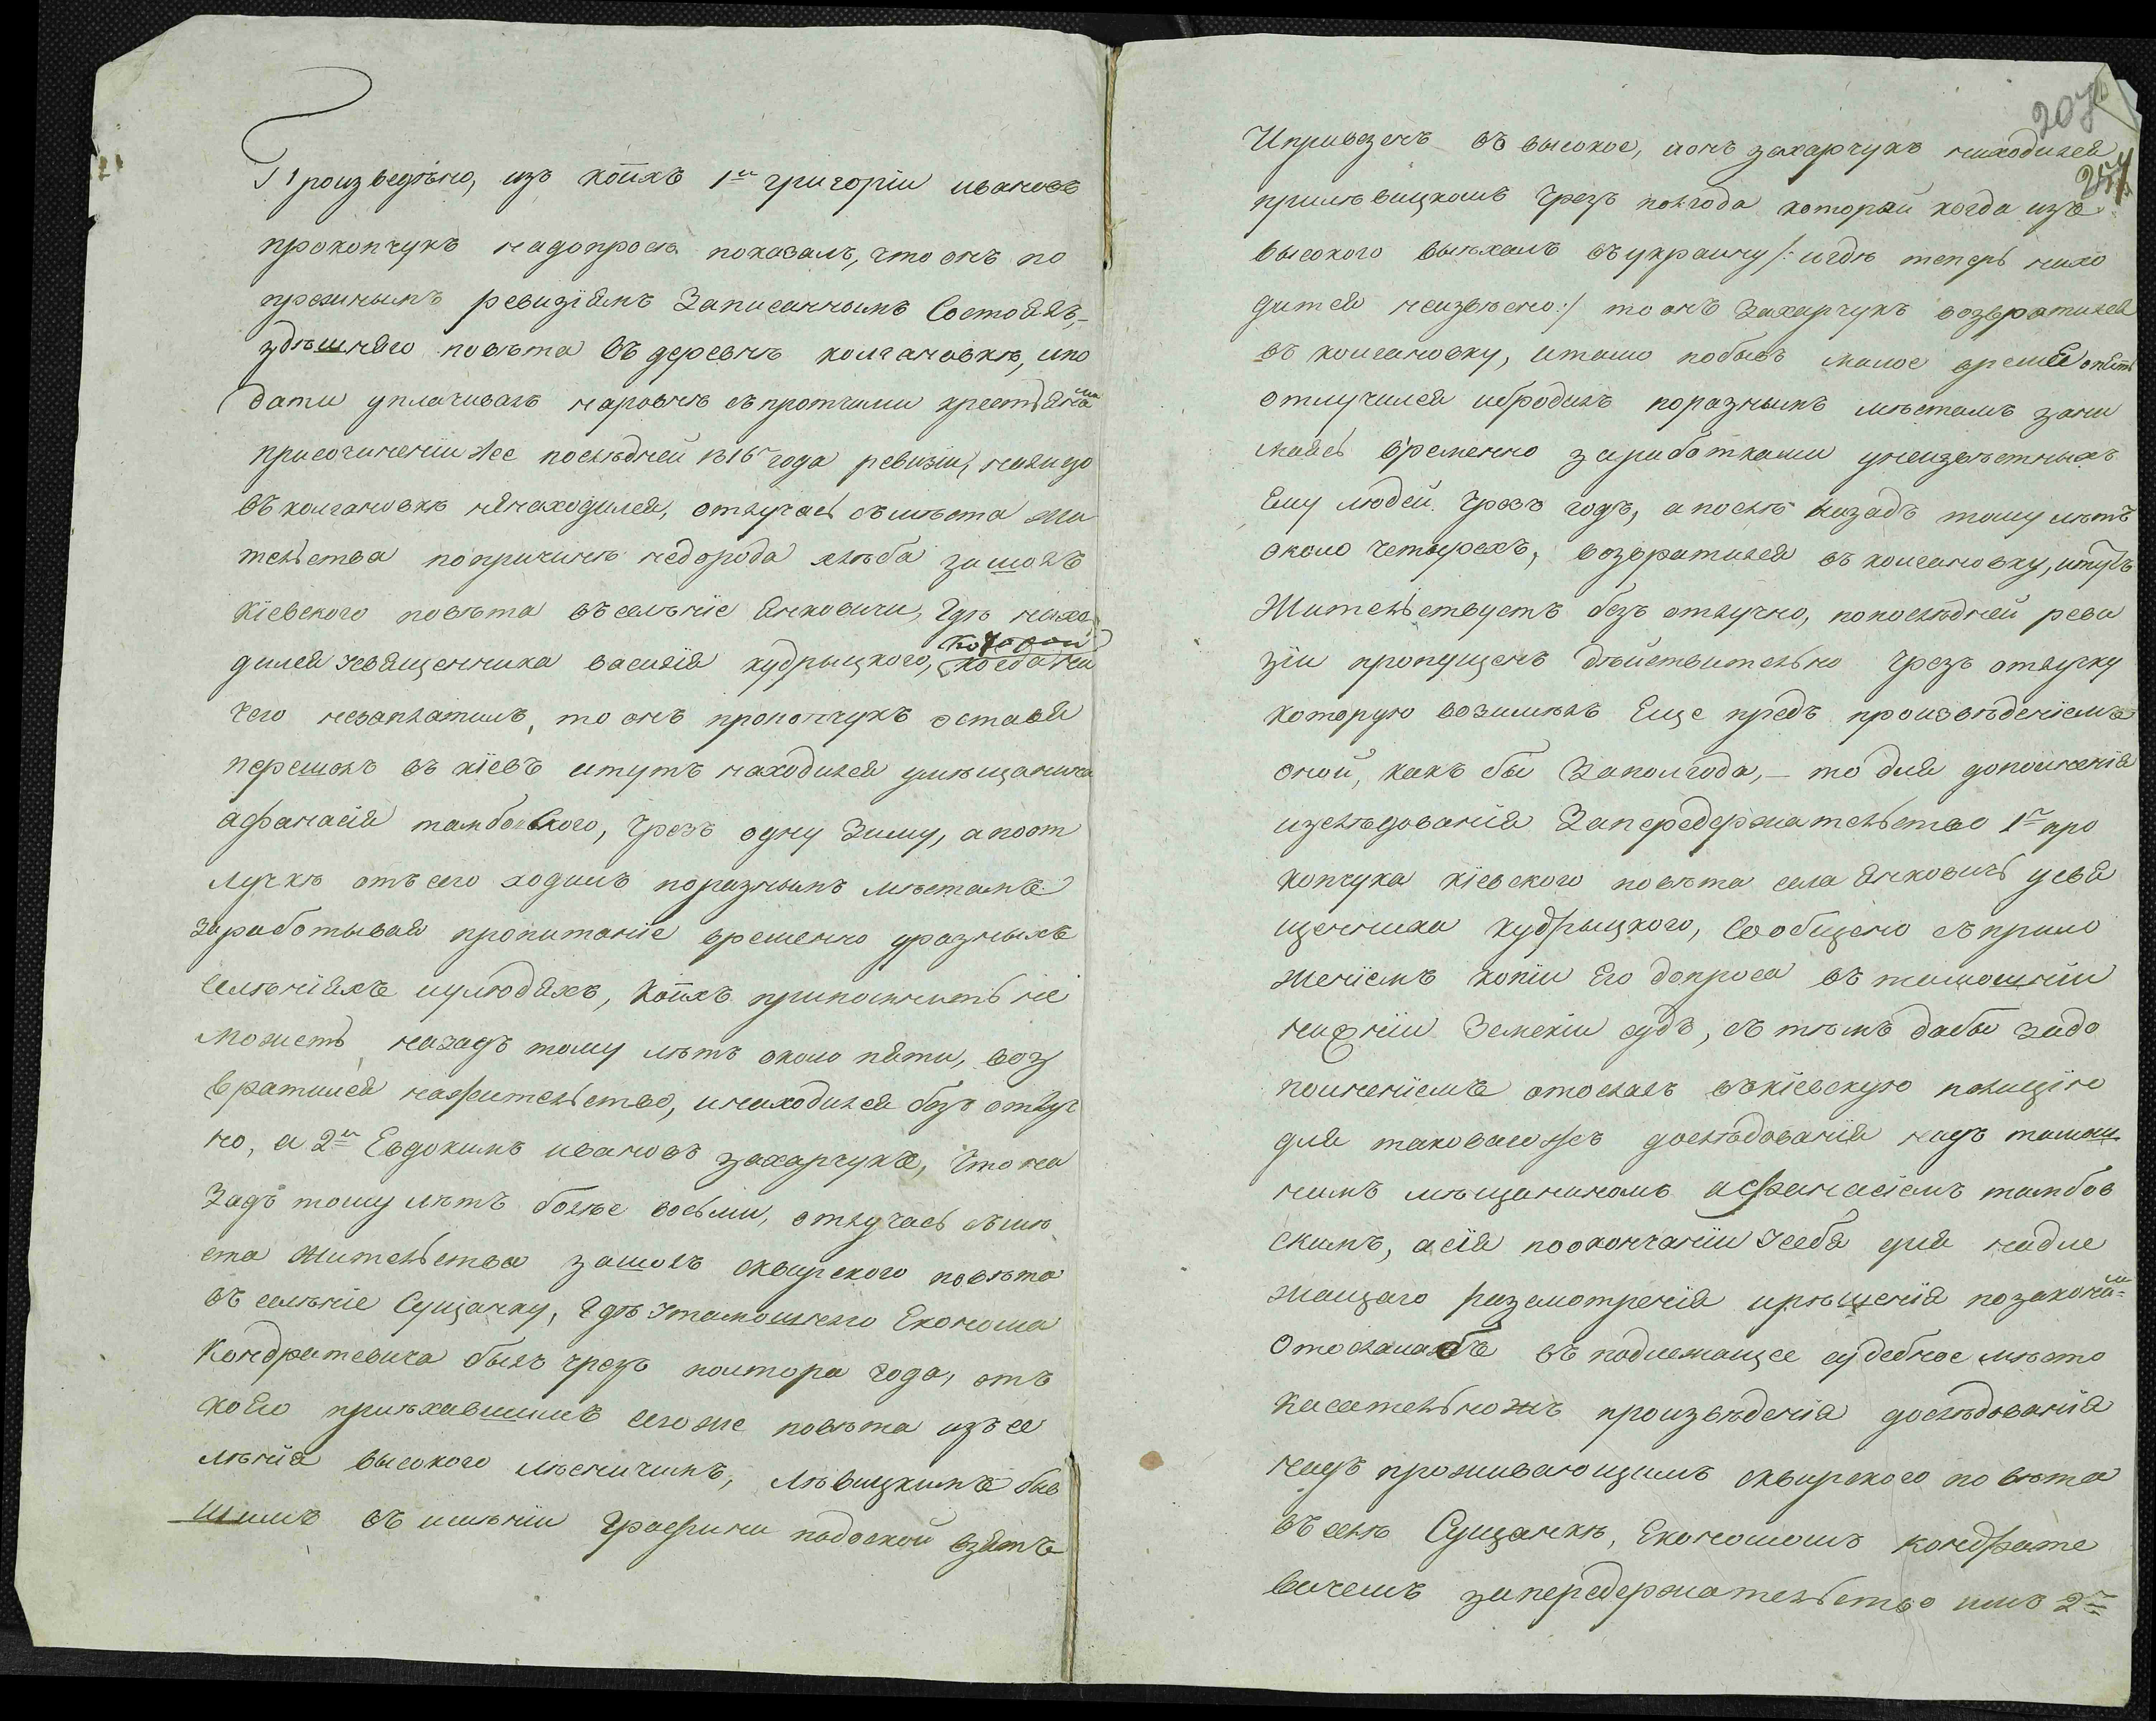 Произведѣно, изъ коихъ 1й григорій ивановъ
прокопчукъ надопросѣ показалъ, что онъ по
прежнымъ ревизіямъ Записаннымъ Состоялъ,–
здѣшняго повѣта въ деревнѣ колгановкѣ, ипо
дати уплачивалъ наровнѣ съпротчими крестьянами
присочиненіи же послѣдней 1816 года ревизіи, налицо
въ колгановкѣ ненаходился, отлучась съмѣста жи
тельства попричинѣ недорода хлѣба зашолъ
кіевского повѣта въселѣніе Янковичи, гдѣ нахо
дился усвященника василія кудрыцкого, когда ни
которой
чего незаплатилъ, то онъ прокопчукъ оставя
перешолъ въ кіевъ итутъ находился умѣщанина
афанасія тамбовского, чрезъ одну Зиму, апоот
лучкѣ отъ сего ходилъ поразнымъ мѣстамъ
Зарабтывая пропитаніе временно уразныхъ
селѣніяхъ иулюдяхъ, коихъ припомнить не
можетъ, назадъ тому лѣтъ около пяти, воз
вратился нажительство, инаходился безъ отлуч
но, а 2й Евдокимъ ивановъ захарчукъ, что на
Задъ тому лѣтъ болѣе восьми, отлучась съмѣ
ста жительства зашолъ сквирского повѣта
въ селѣніе Сущанку, гдѣ утамошнего Економа
Кондратевича былъ чрезъ полтора года, отъ
коего приѣхавшимъ сегоже повѣта изъ се
лѣнія высокого лѣсничимъ, лѣвицкимъ быв
шимъ въ имѣніи Графини подоской взятъ
207
254
Ипривезенъ въ высокое, ионъ захарчукъ находился
прилѣвицкомъ чрезъ полгода которой когда изъ
высокого выѣхалъ въукраину /: игдѣ теперь нахо
дится неизвѣсно :/ то онъ Захарчукъ возвратился
въ колгановку, итамо побывъ малое время опять
отлучился ибродилъ поразнымъ мѣстамъ зани
маясь временно заработками унеизвѣстныхъ
Ему людей чрезъ годъ, а послѣ назадъ тому лѣтъ
около четырехъ, возвратился въ колгановку, итутъ
Жительствуетъ безъ отлучно, попослѣдней реви
зіи пропущенъ дѣйствительно чрезъ отлучку
которую возимѣлъ Еще предъ произвѣденіемъ
оной, какъ бы Заполгода,– то для дополненія
изслѣдованія Запередержательство 1го про
копчука кіевского повѣта села Янковичъ усвя
щенника кудрыцкого, Сообщено съприло
женіемъ копіи Его допроса въ тамошній
нижній Земскій судъ, съ тѣмъ дабы задо
полненіемъ отослалъ въкіевскую полицію
для таковагожъ дослѣдованія надъ тамош
нимъ мѣщаниномъ афанасіемъ тамбов
скимъ, асія поокончаніи усебя для надле
жащаго разсмотренія ирѣшенія позаконамъ
отослалабъ въ подлежащее судебное мѣсто
касательножъ произвѣденія дослѣдованія
надъ проживающимъ сквирского повѣта
въ селѣ Сущанкѣ, Економомъ кондрате
вичемъ запередержательство имъ 2го